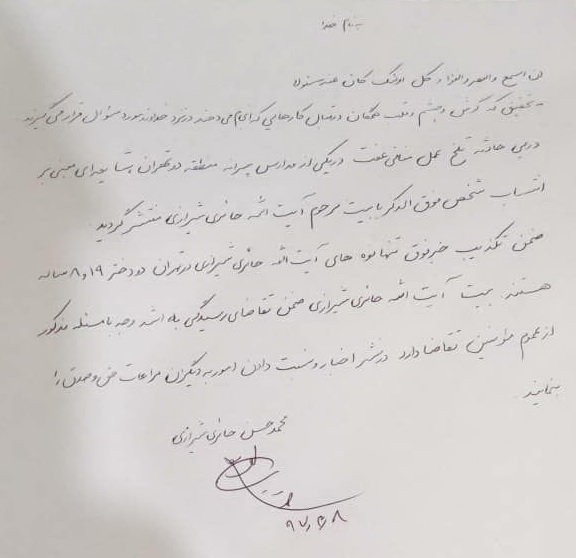 بنام خدا
ان السمع والبصر والفؤاد کل اولئک کان عنه مسئولا
بتحقیق که گوش و چشم و قلب همگان در قبال کارهایی که انجام می دهند در نزد خداوند مورد سؤال قرار می گیرند
در پی حادثه تلخ عمل منافی عفت در یکی از مدارس پسرانه منطقه دو تهران شایعه ای مبنی بر
انتساب شخص فوق الذکر با بیت مرحوم آیت الله حائری شیرازی منتشر گردید
ضمن تکذیب خبر فوق تنها نوه های آیت الله حائری شیرازی در تهران دو دختر ۱۹ و ۸ ساله
هستند. بیت آیت الله حائری شیرازی ضمن تقاضای رسیدگی به اشد وجه با مسئله مذکور
از عموم مؤمنین تقاضا دارد در نشر اخبار و نسبت دادن امور به دیگران مراعات حق و صدق را
بنمایند.
محمد حسن حائری شیرازی
۹۷٫۳٫۸